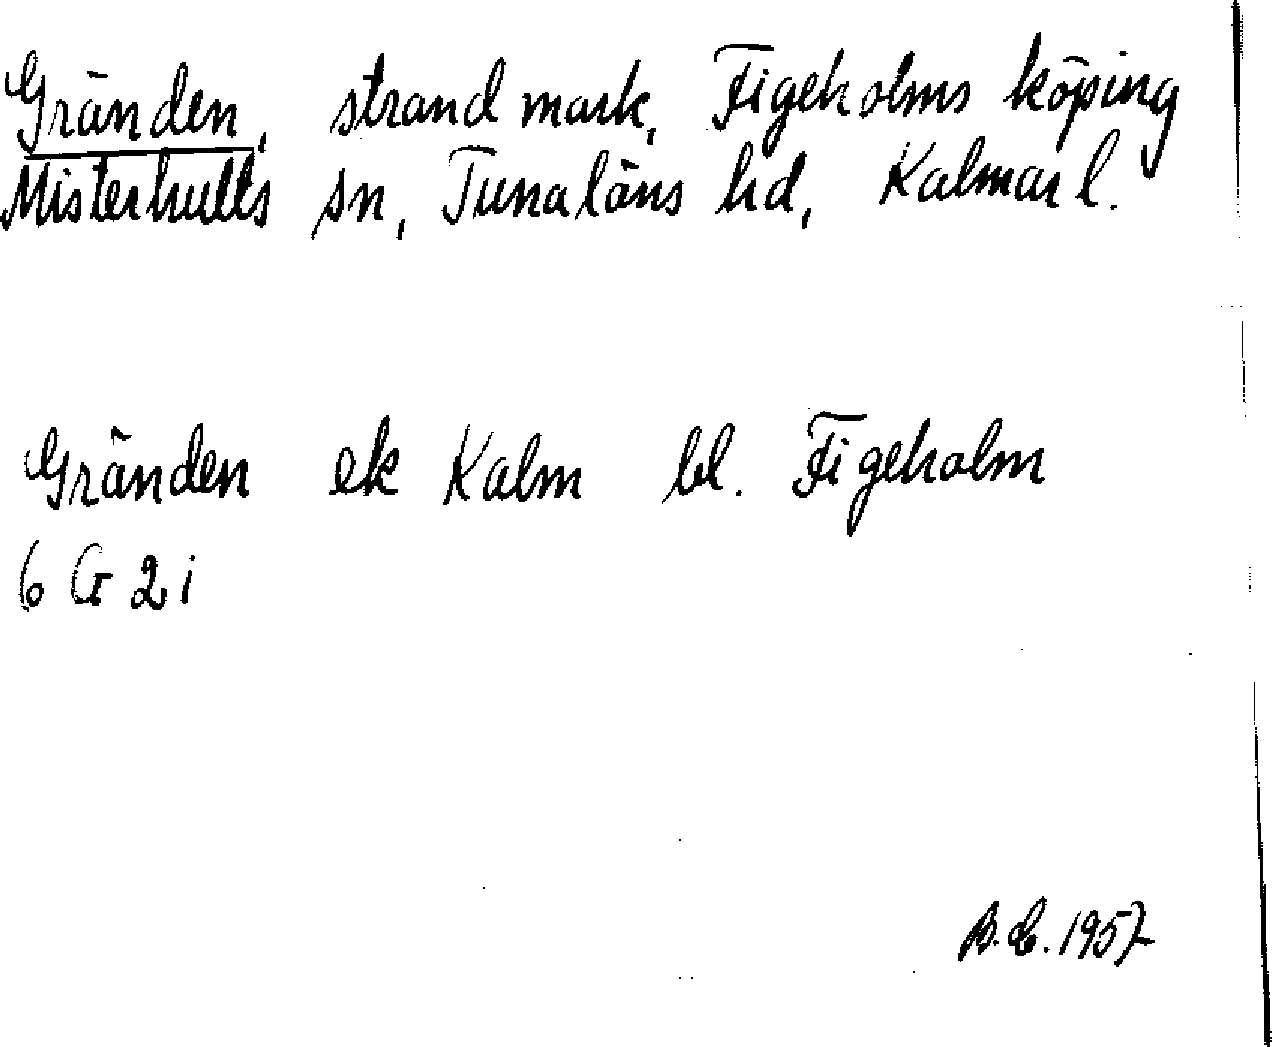 Gränden, strandmark, Figeholms köping
Misterhults sn, Tunaläns hd, Kalmar l.
Gränden ek Kalm bl. Figeholm
6 G 2 i
1957